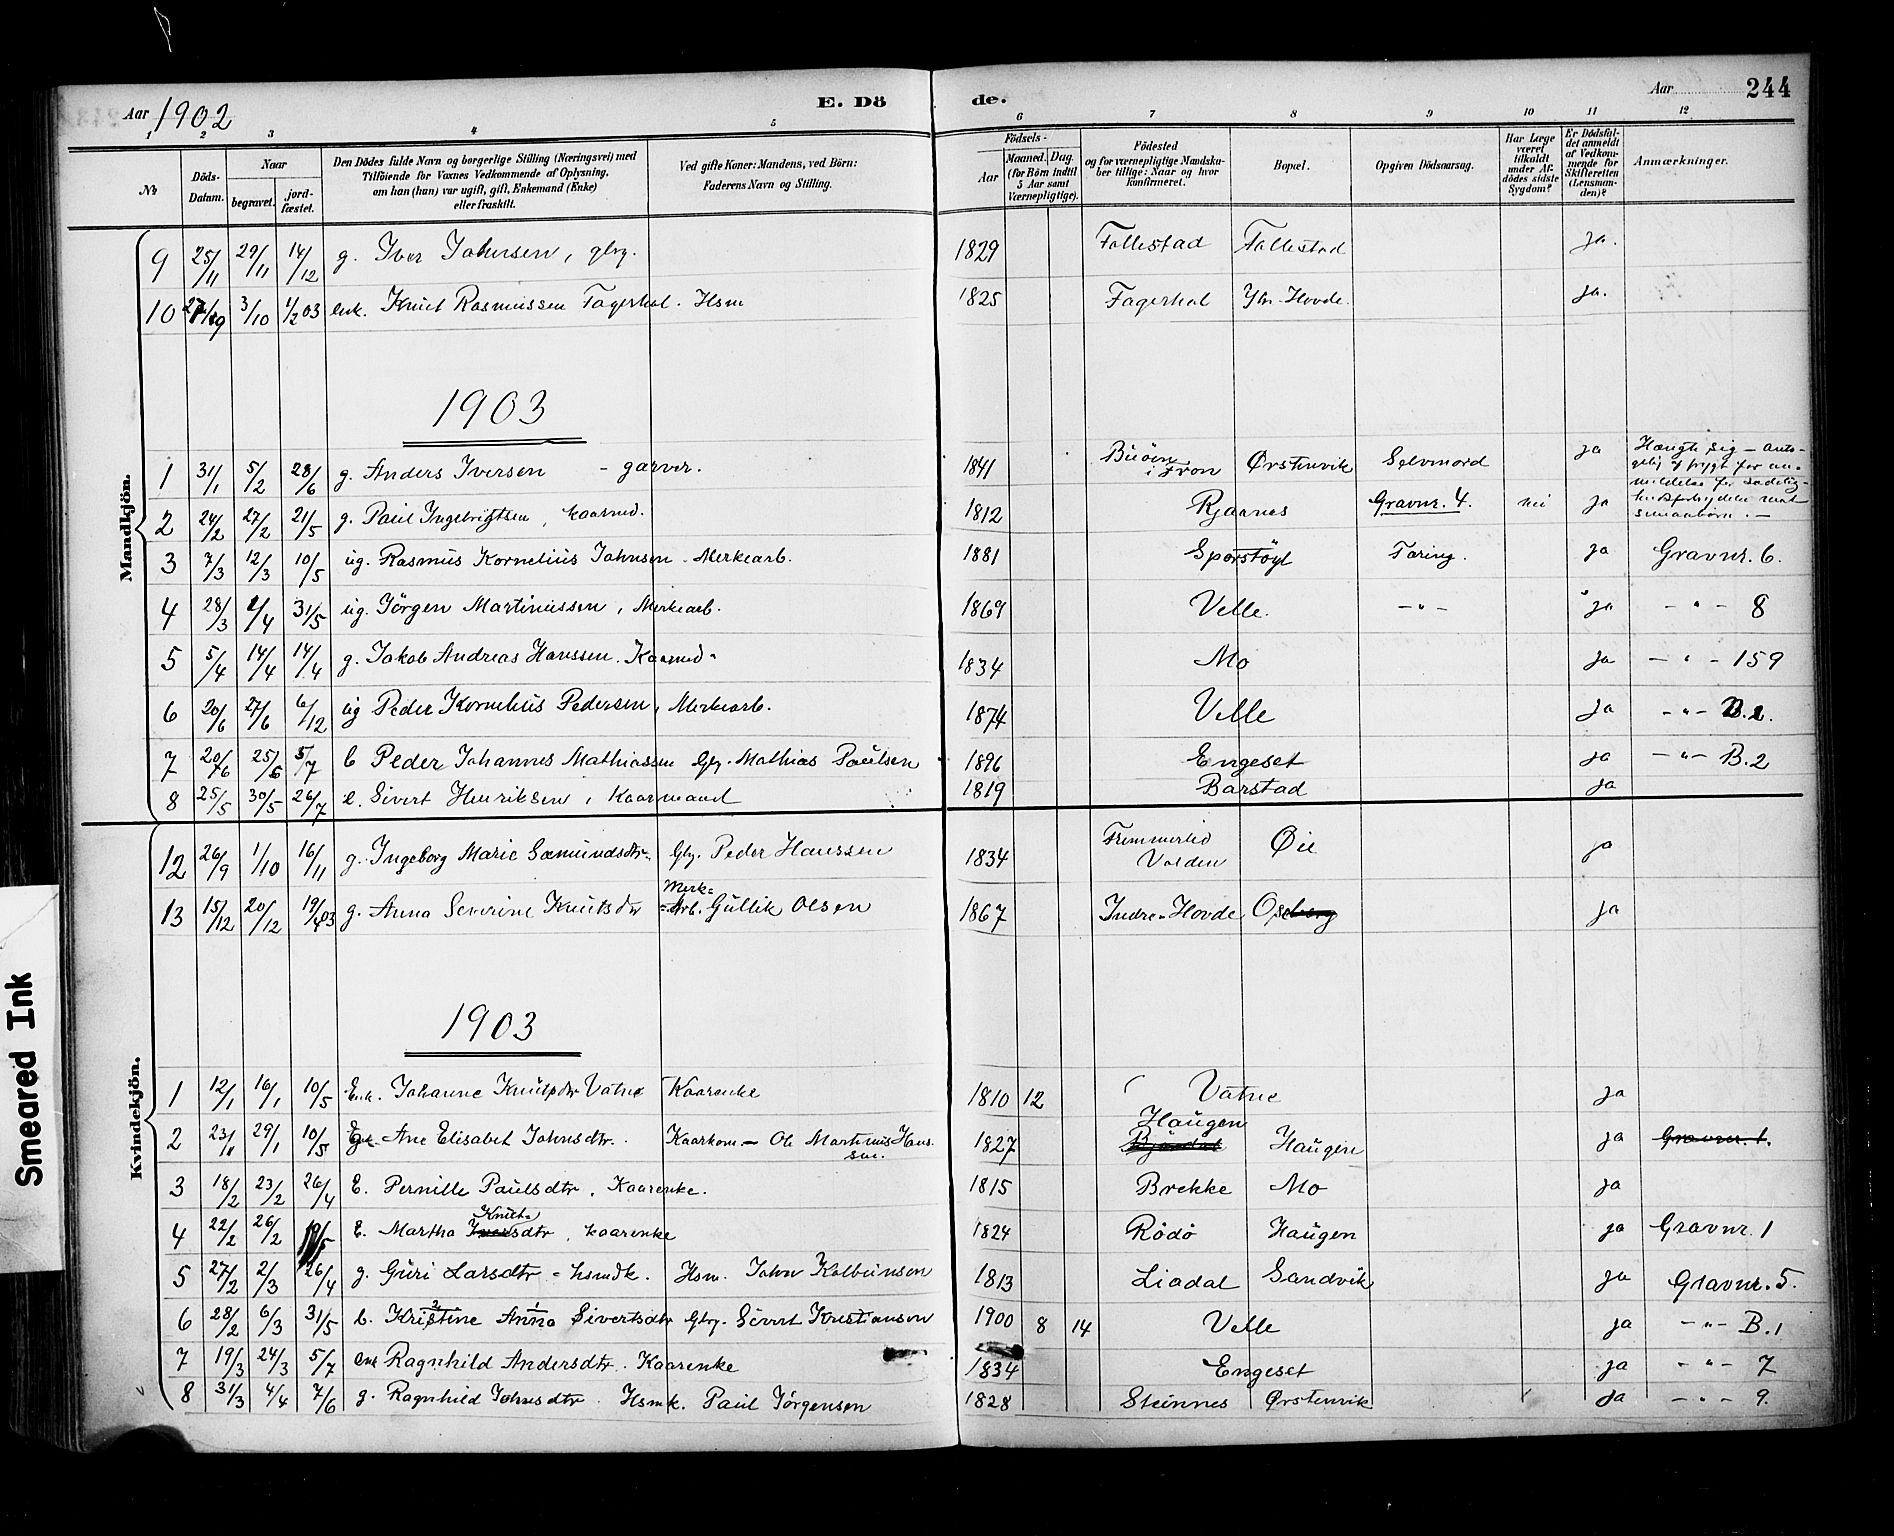 Aar 1902
E. Dö
de.
Aar
244
1 2 3 4 5 6 7 8 9 10 11 12
No
Döds-Datum.
Naar
begravet.
jord-fæstet.
Den Dödes fulde Navn og borgerlige Stilling (Næringsvei) med
Tilföiende for Voxnes Vedkommende af Oplysning,
om han (hun) var ugift, gift, Enkemand (Enke)
eller fraskilt.
Ved gifte Koner: Mandens, ved Börn:
Faderens Navn og Stilling.
Födsels-
Aar
Maaned. Dag.
(for Börn indtil
5 Aar samt
Værnepligtige).
Födested
og for værnepligtige Mandska-
ber tillige: Naar og hvor
konfirmeret.
Bopæl.
Opgiven Dödsaarsag.
Har Læge
været
tilkaldt
under Af-
dödes sidste
Sygdom?
Er Dödsfal-
det anmeldt
af Vedkom-
mende for
Skifteretten
(Lensman-
den)?
Anmærkninger.
Mandkjön.
9 25/11 29/11 14/12 g. Iver Johnsen, gbrg. 1829 Follestad Follestad ja.
10 3/10 1/2 03 enk. Knut Rasmussen Fagerhol. Hsm 1825 Fagerhol Ytr-Hovde. ja.
1903
1 31/1 5/2 28/6 g. Anders Iversen - garver. 1841 i Fron Ørstenvik Selvmord ja Hængte sig - anta-
gelig af frygt for an-
meldelse for sædelig-
hedsforbrydelse mot
smaabørn. -
2 24/2 27/2 21/5 g. Paul Ingebrigtsen, kaarmd. 1812 Rjaanes Gravnr. 4. nei ja
3 7/3 12/3 10/5 ug. Rasmus Kornelius Johnsen. Merkearb. 1881 Sporstöyl Tæring. ja Gravnr. 6.
4 28/3 1/4 31/5 ug. Jörgen Martinussen, Merkearb. 1869 Velle. -"- ja -"- 8
5 5/4 14/4 14/4 g. Jakob Andreas Hanssen. Kaarmd- 1834 Mo ja -"- 159
6 20/6 27/6 6/12 ug Peder Kornelius Pedersen, Merkearb. 1874 Velle ja -"- B.1.
7 20/6 25/6 5/7 b Peder Johannes Mathiassen Gbr. Mathias Paulsen 1896 Engeset ja -"- B.2
8 25/5 30/5 26/7 e. Sivert Henriksen, Kaarmand 1819 Barstad ja
Kvindekjön.
12 26/9 1/10 16/11 g. Ingeborg Marie Sæmundsdtr. Gbr. Peder Hanssen 1834 Frimmerlid
Volden Øie ja
13 15/12 20/12 19/4 03 g. Anna Severine Knutsdtr Merk=
=Arb. Gullik Olsen 1867 Indre-Hovde Oseberg ja
1903
1 12/1 16/1 10/5 Enk. Johanne Knutsdtr Vatne Kaarenke 1810 12 Vatne ja
2 23/1 29/1 10/5 Ane Elisabet Johnsdtr. Kaarkom - Ole Martinus Hans-
sen. 1827 Haugen
Bjørdal Haugen ja Gravnr. 1.
3 18/2 23/2 26/4 E. Pernille Paulsdtr, Kaarenke. 1815 Brekke Mo ja
4 22/2 26/2 10/5 E. Martha Iversdtr, kaarenke 1824 Rödö Haugen ja Gravnr. 1
Knut-
5 27/2 2/3 26/4 g. Guri Larsdtr - hsmdk. Hsm. John Kolbeinsen 1813 Liadal Sandvik ja Gravnr. 5.
6 28/2 6/3 31/5 b. Kristine Anna Sivertsdtr Gbrg. Sivert Kristiansen 1900 8 14 Velle ja -"- B.1
7 19/3 24/3 5/7 enk Ragnhild Andersdtr. Kaarenke 1834 Engeset ja -"- 7
8 31/3 4/4 7/6 g. Ragnhild Johnsdtr. Hsmk. Paul Jörgensen 1828 Steinnes Ørstenvik ja -"- 9.
Smeared Ink